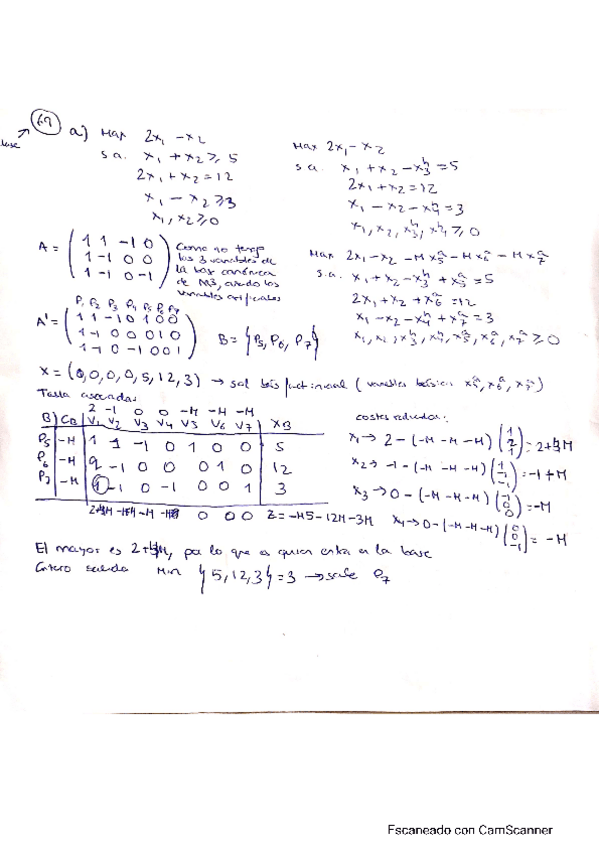 69 a) Max 2x₁ - x₂
s.a. x₁ + x₂ ≥ 5
2x₁ + x₂ = 12
x₁ - x₂ ≥ 3
x₁, x₂ ≥ 0
Max 2x₁ - x₂
s.a. x₁ + x₂ - x₃ʰ = 5
2x₁ + x₂ = 12
x₁ - x₂ - x₄ʰ = 3
x₁, x₂, x₃ʰ, x₄ʰ ≥ 0
A = ( 1 1 -1 0
1 -1 0 0
1 -1 0 -1 )
Como no tengo
los 3 variables de
la base canónica
de M3, añado los
variables artificiales
Max 2x₁ - x₂ - Mx₅ᵃ - Mx₆ᵃ - Mx₇ᵃ
s.a. x₁ + x₂ - x₃ʰ + x₅ᵃ = 5
2x₁ + x₂ + x₆ᵃ = 12
x₁ - x₂ - x₄ʰ + x₇ᵃ = 3
x₁, x₂, x₃ʰ, x₄ʰ, x₅ᵃ, x₆ᵃ, x₇ᵃ ≥ 0
P₁ P₂ P₃ P₄ P₅ P₆ P₇
A' = ( 1 1 -1 0 1 0 0
1 -1 0 0 0 1 0
1 -1 0 -1 0 0 1 )
B = {P₅, P₆, P₇}
X = (0, 0, 0, 0, 5, 12, 3) → sol básica inicial (variables básicas x₅ᵃ, x₆ᵃ, x₇ᵃ)
Tabla asociada:
2 -1 0 0 -M -M -M
B CB V₁ V₂ V₃ V₄ V₅ V₆ V₇ XB
P₅ -M 1 1 -1 0 1 0 0 5
P₆ -M 2 -1 0 0 0 1 0 12
P₇ -M 1 -1 0 -1 0 0 1 3
0 0 0 Z = -M5 - 12M - 3M
costes reducidos:
x₁ → 2 - (-M -M -M) (1 2 1) = 2+4M
x₂ → -1 - (-M -M -M) (1 -1 -1) = -1+M
x₃ → 0 - (-M -M -M) (-1 0 0) = -M
x₄ → 0 - (-M -M -M) (0 0 -1) = -M
El mayor es 2+4M, por lo que es quien entra en la base
Criterio salida Min {5, 12, 3} = 3 → sale P₇
Escaneado con CamScanner